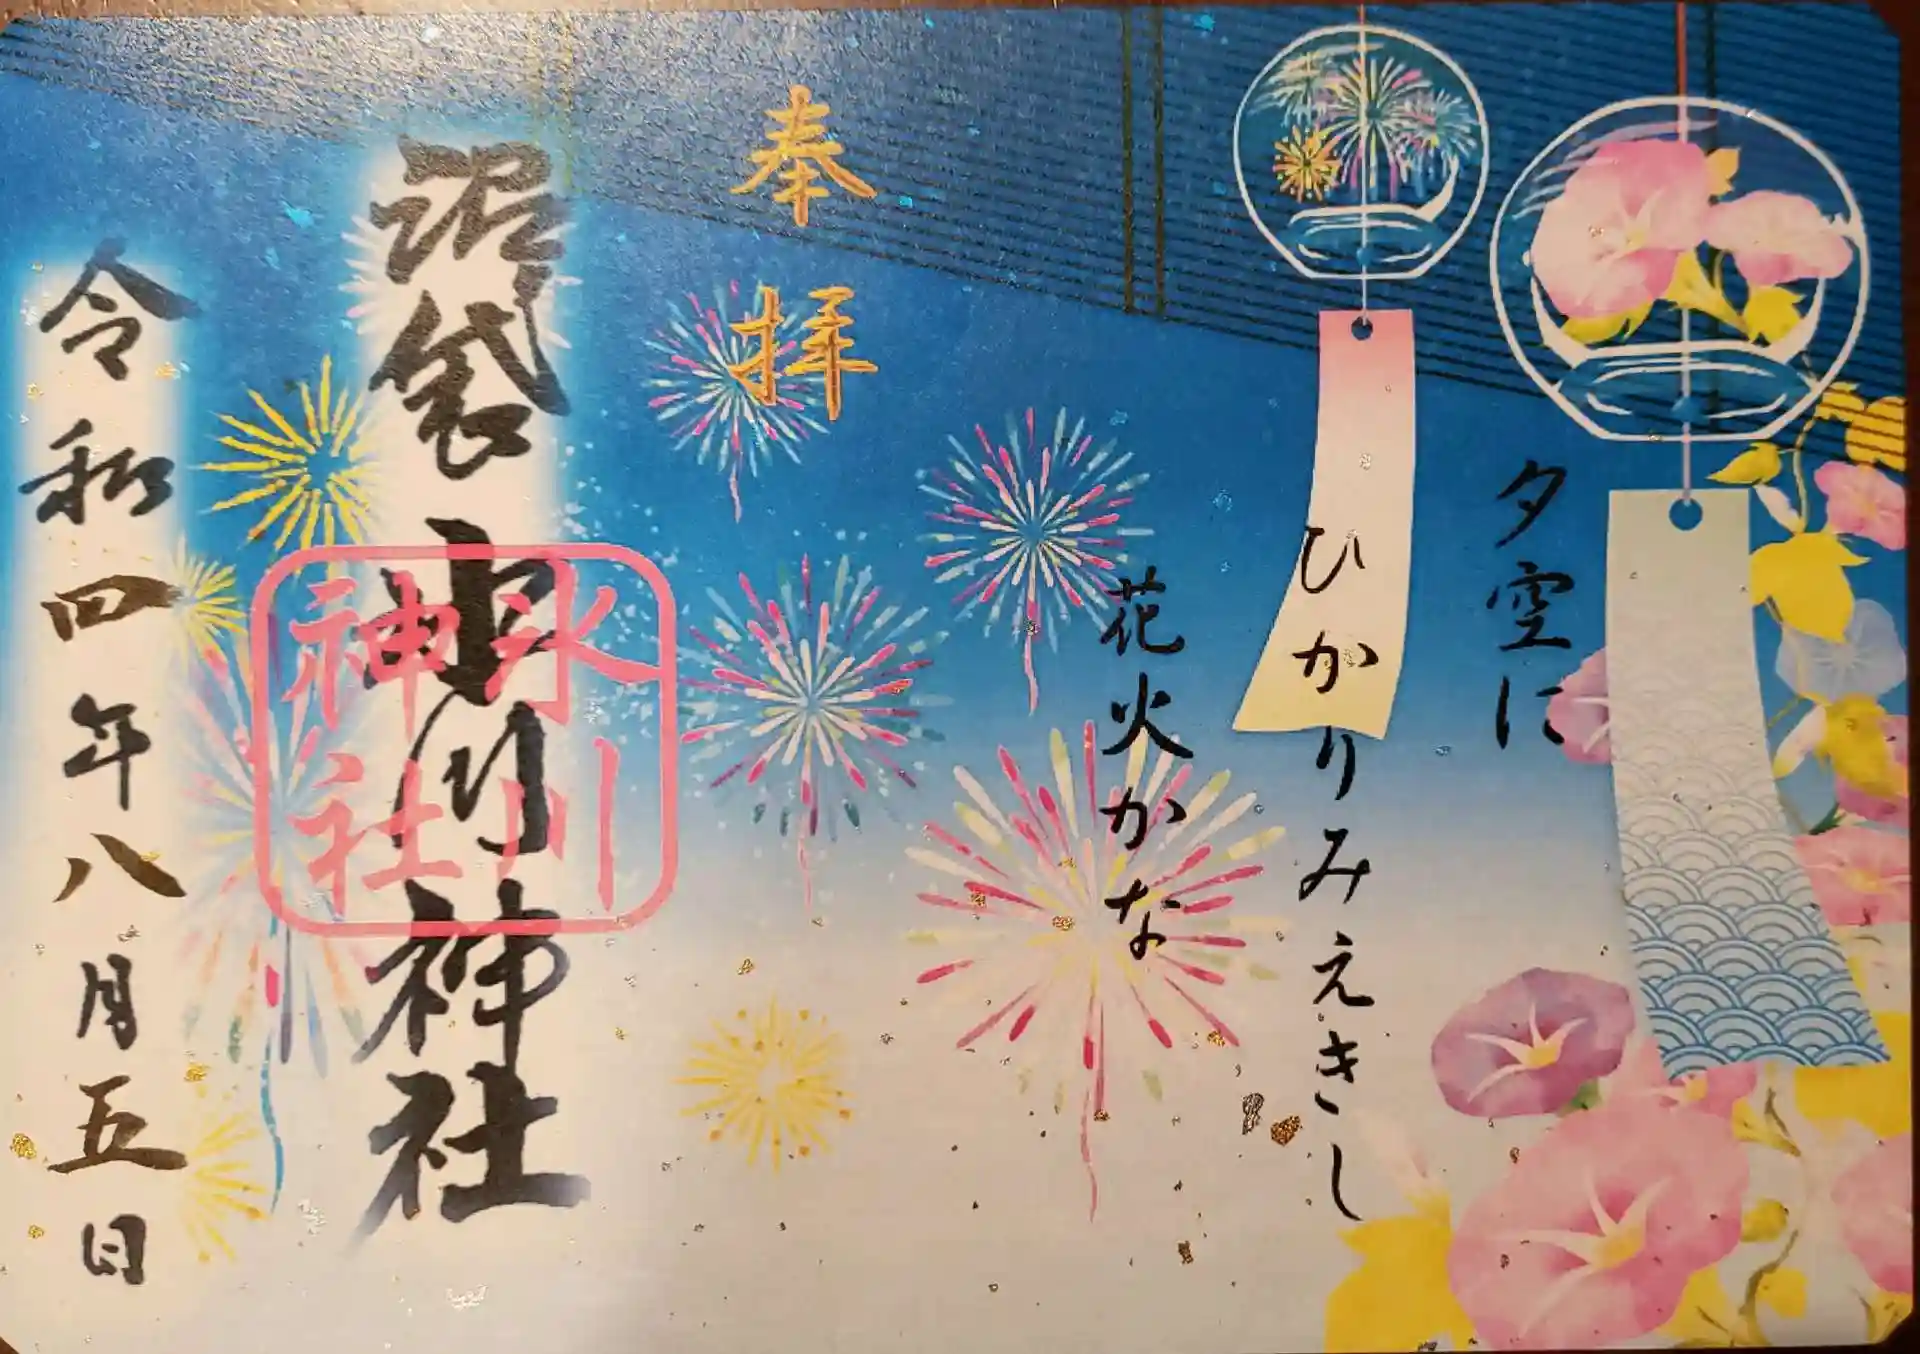 夕空に
ひかりみえきし
花火かな
奉拝
沼袋氷川神社
氷川神社
令和四年八月五日